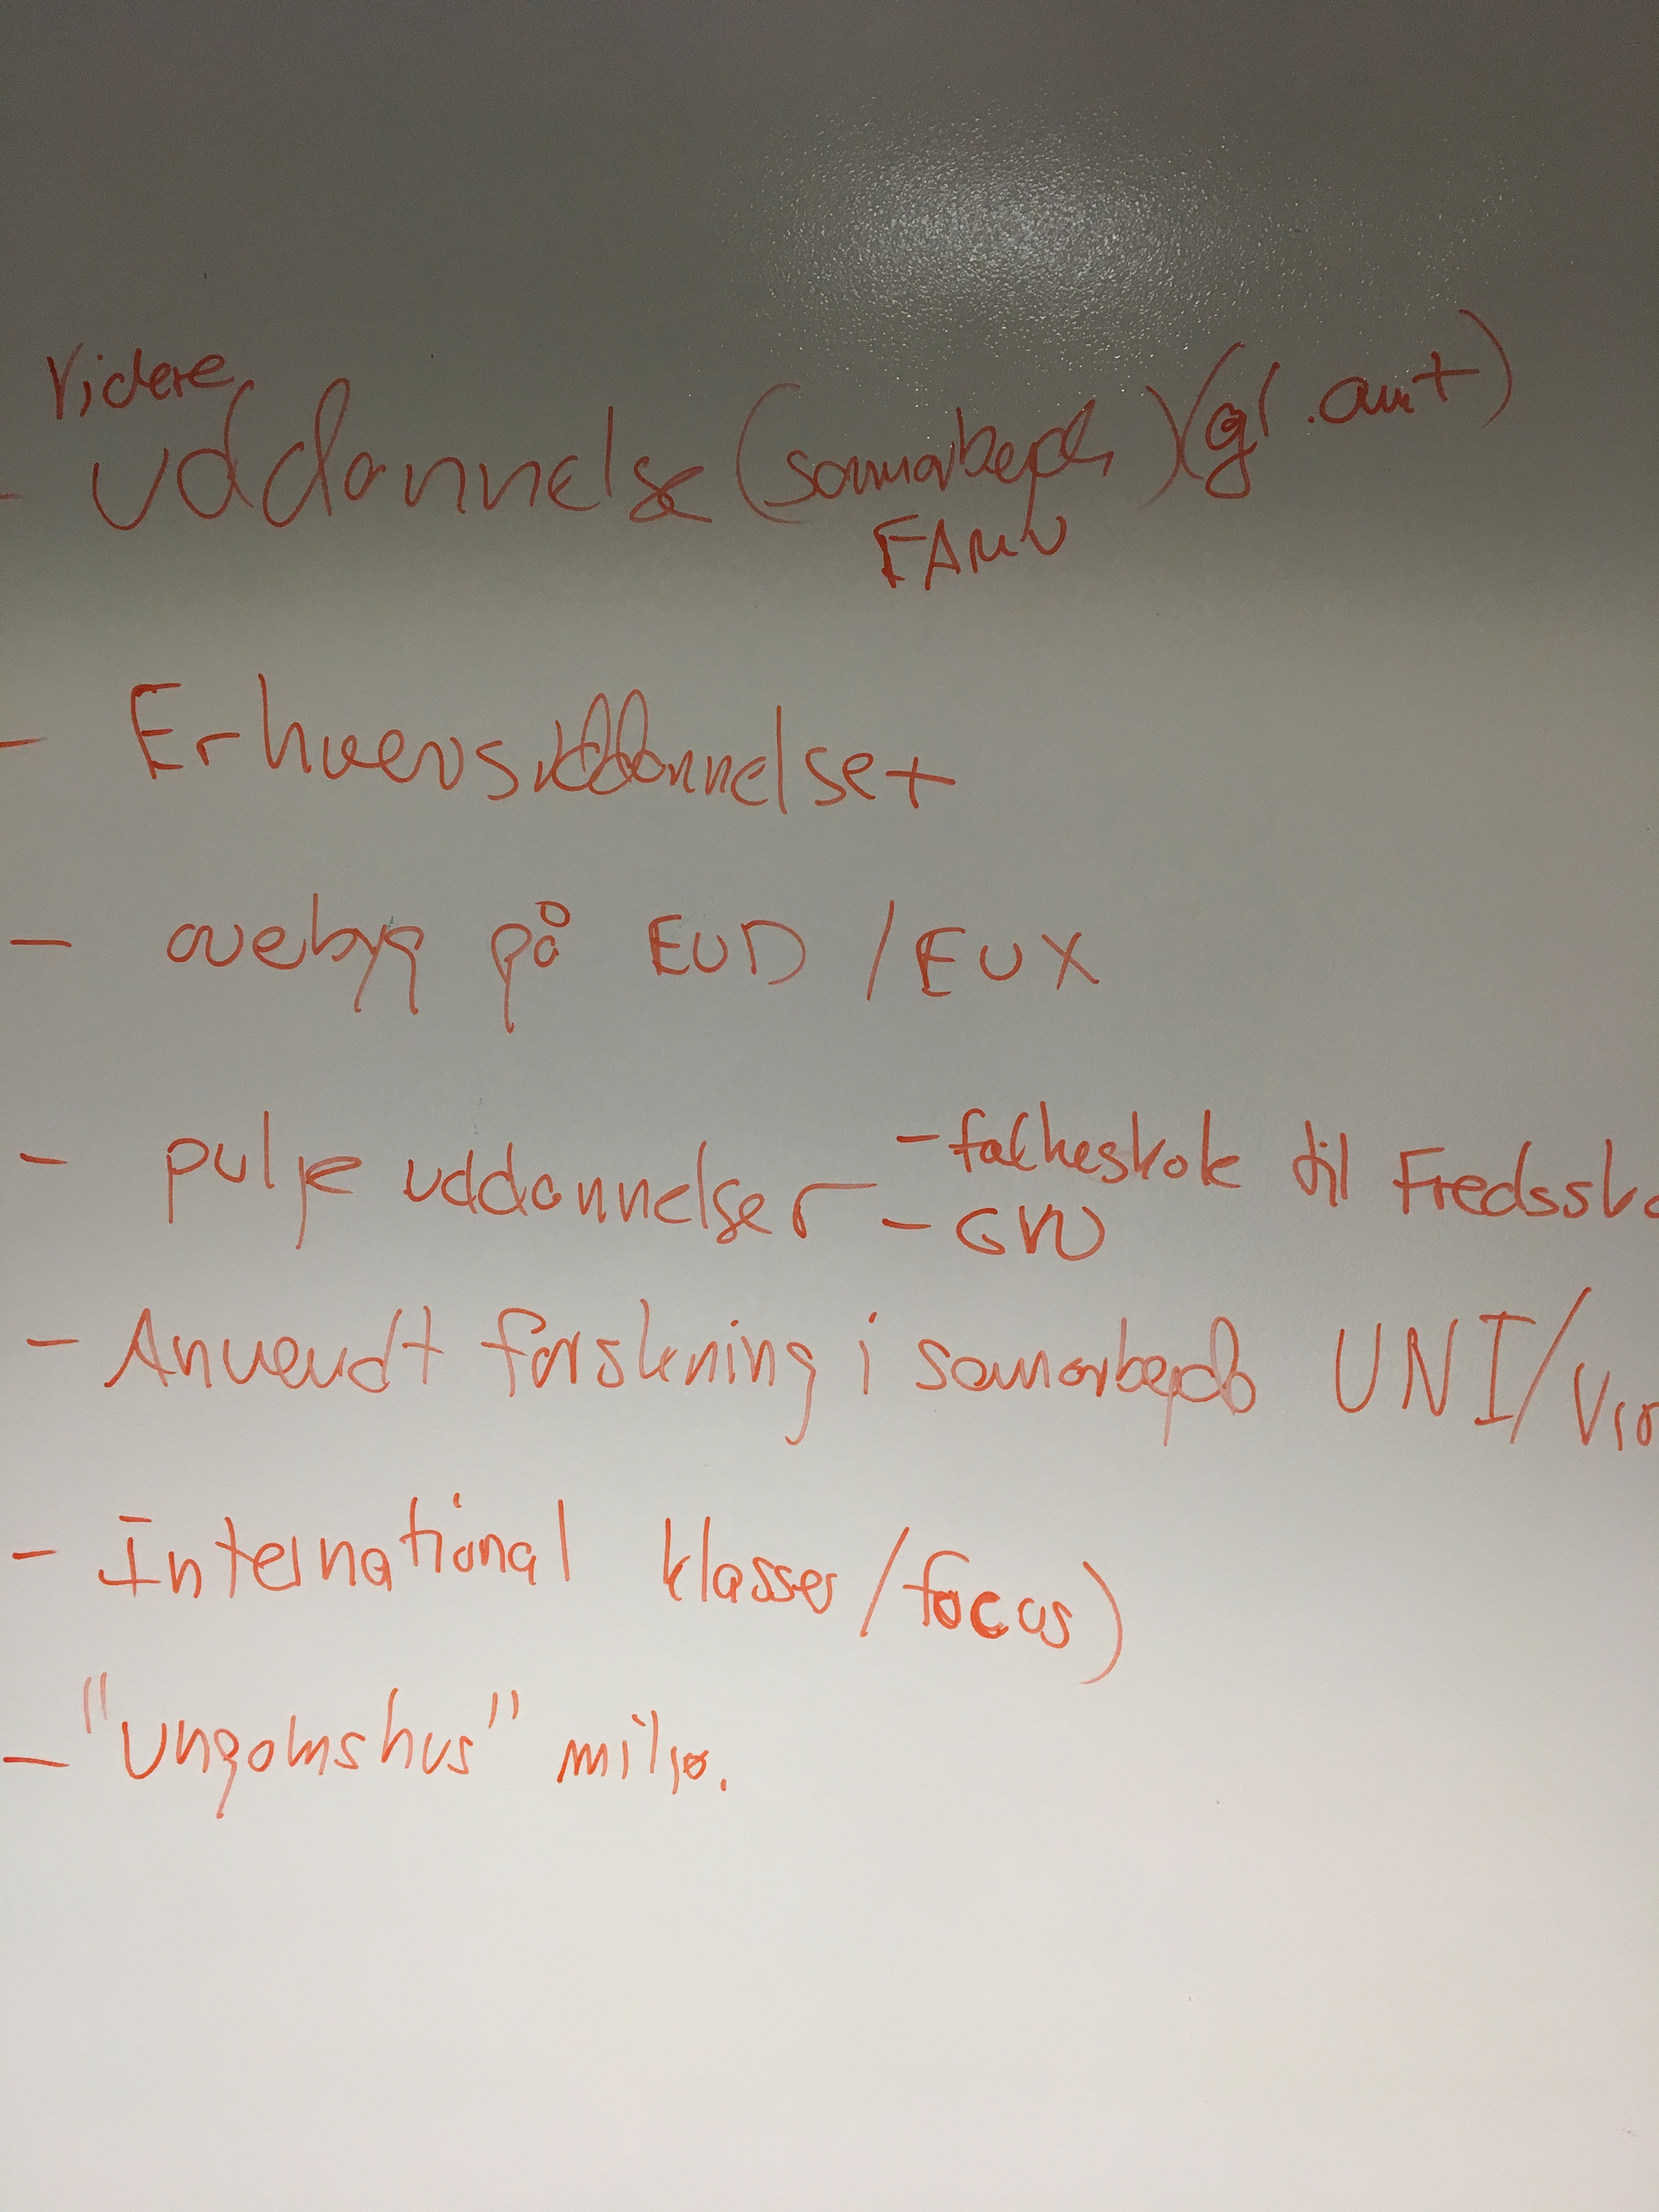 Videre
- uddannelse (samarbejde) (gl. amt)
FAMU
- Erhvervsuddannelse+
- overbyg på EUD / EUX
- pulje uddannelser - falkeskole til Fredssko
- GVU
- Anvendt forskning i samarbejde UNI/Vir
- International klasser/focus)
- "Ungdomshus" miljø.